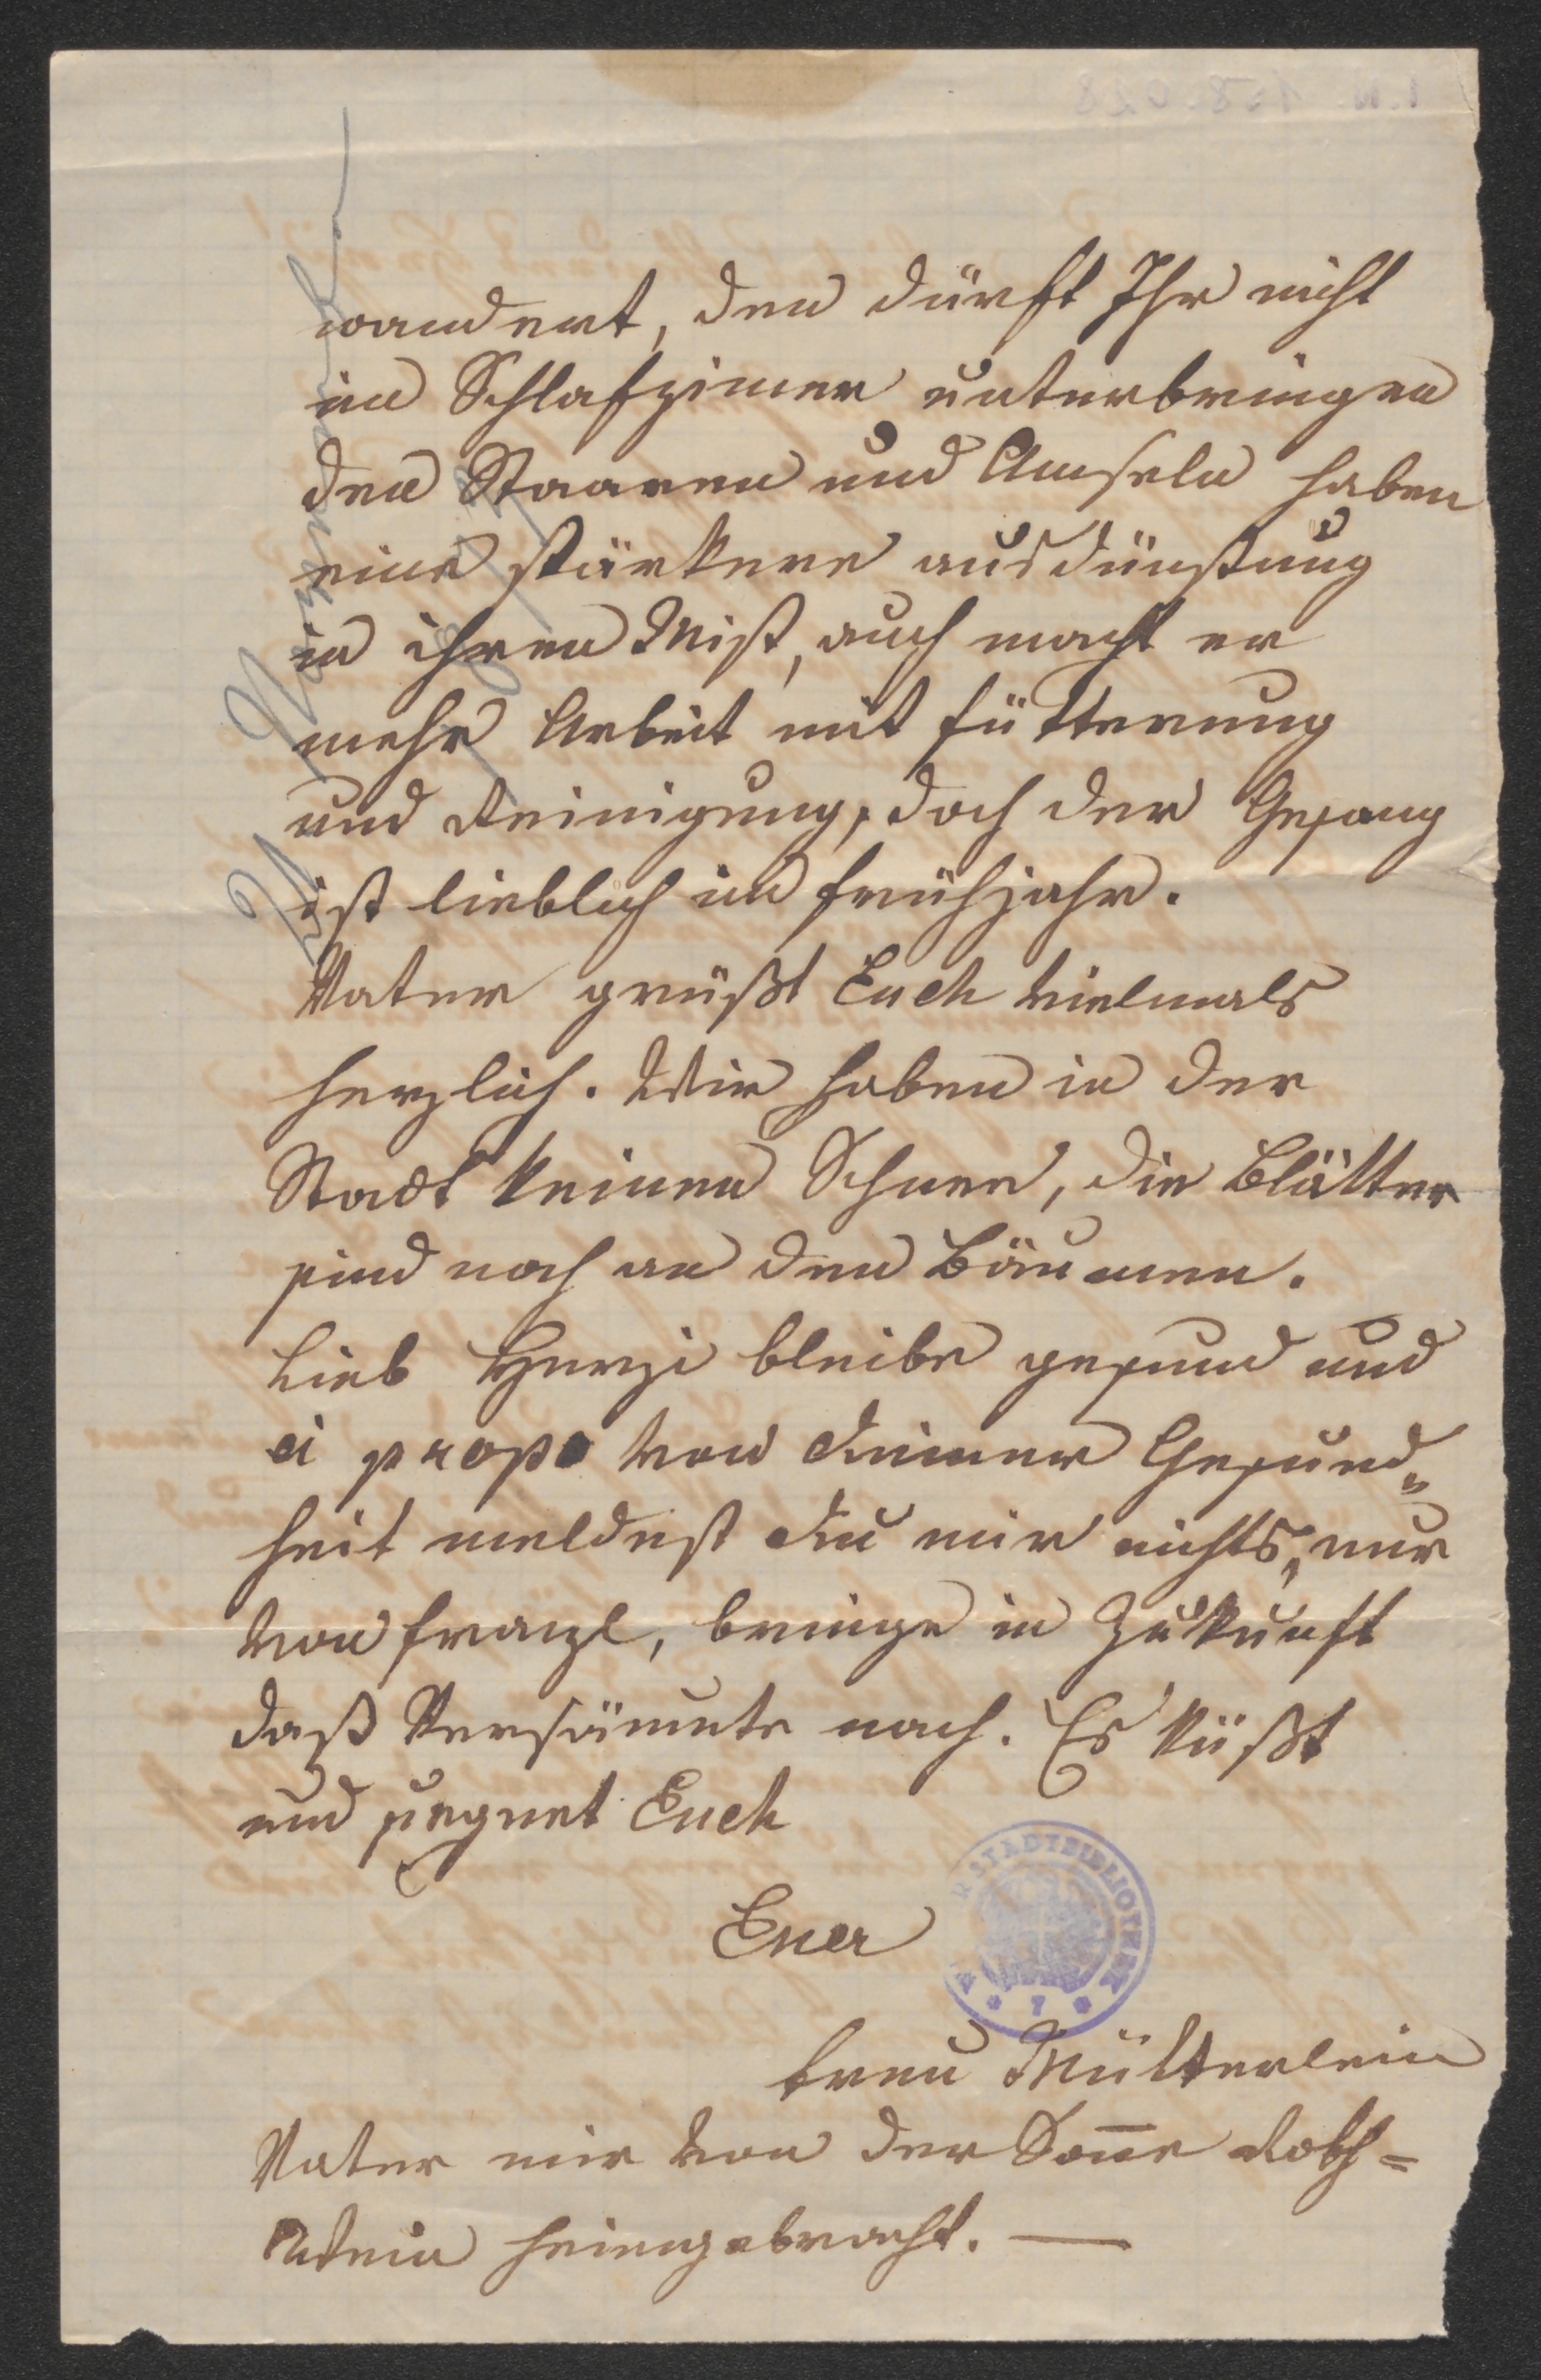 wandert, den dürft Ihr nicht
im Schlafzimer unterbringen
den Staaren und Amseln haben
eine stärkere ausdünstung
in ihren Mist, auch macht er
mehr Arbeit mit fütterung
und Reinigung, doch der Gesang
ist lieblich im frühjahr.
Vater grüßt Euch vielmals
herzlich. Wir haben in der
Stadt keinen Schnee, die Blätter
sind noch an den Bäumen.
Lieb Herzi bleibe gesund und
á propo von Deiner Gesund„
heit meldest Du mir nichts, nur
von franzl, bringe in Zukunft
daß Versäumte nach. Es küßt
und segnet Euch
Euer
treu Mütterlein
Vater mir von der Sone Roth=
Wein heimgebracht. —
STADTBIBLIOTHEK